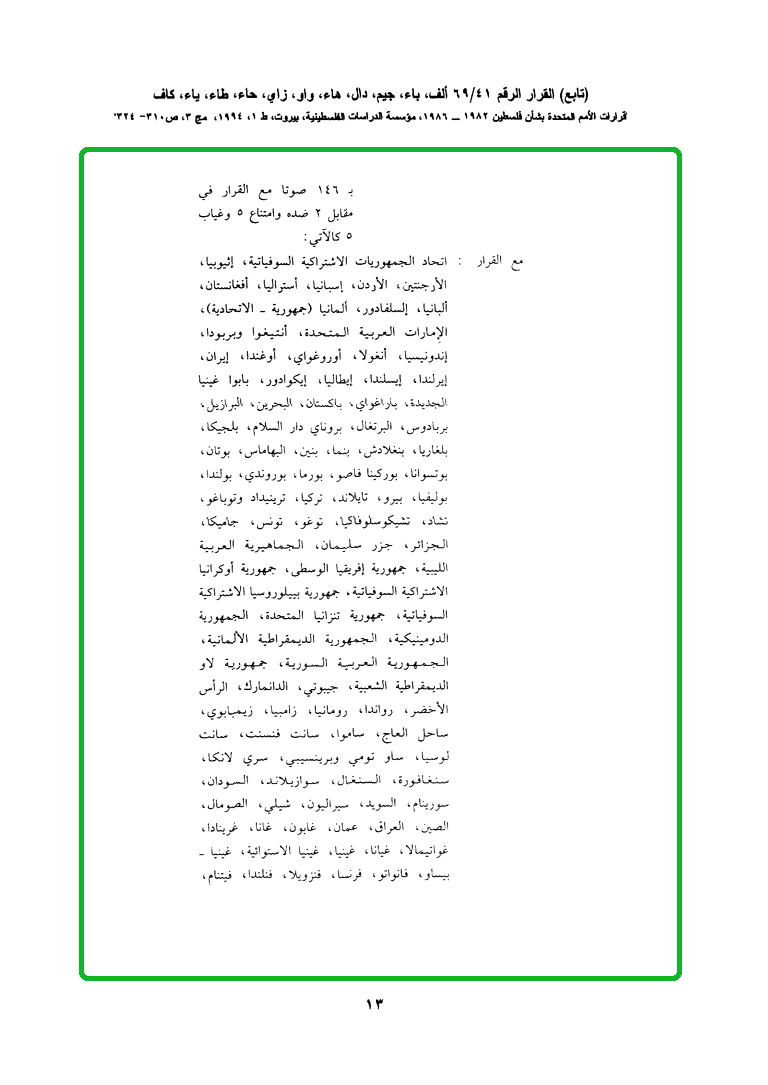 (تابع) القرار الرقم ٦٩/٤١ ألف، باء، جيم، دال، هاء، واو، زاي، حاء، طاء، ياء، كاف
"قرارات الأمم المتحدة بشأن فلسطين ١٩٨٢ ــ ١٩٨٦، مؤسسة الدراسات الفلسطينية، بيروت، ط ١، ١٩٩٤، مج ٣، ص٣١٠- ٣٢٤"
بـ ١٤٦ صوتا مع القرار في
مقابل ٢ ضده وامتناع ٥ وغياب
٥ كالآتي:
مع القرار : اتحاد الجمهوريات الاشتراكية السوفياتية، إثيوبيا،
الأرجنتين، الأردن، إسبانيا، أستراليا، أفغانستان،
ألبانيا، إلسلفادور، ألمانيا (جمهورية ـ الاتحادية)،
الإمارات العربية المتحدة، أنتيغوا وبربودا،
إندونيسيا، أنغولا، أوروغواي، أوغندا، إيران،
إيرلندا، إيسلندا، إيطاليا، إيكوادور، بابوا غينيا
الجديدة، باراغواي، باكستان، البحرين، البرازيل،
بربادوس، البرتغال، بروناي دار السلام، بلجيكا،
بلغاريا، بنغلادش، بنما، بنين، البهاماس، بوتان،
بوتسوانا، بوركينا فاصو، بورما، بوروندي، بولندا،
بوليفيا، بيرو، تايلاند، تركيا، ترينيداد وتوباغو،
تشاد، تشيكوسلوفاكيا، توغو، تونس، جاميكا،
الجزائر، جزر سليمان، الجماهيرية العربية
الليبية، جمهورية إفريقيا الوسطى، جمهورية أوكرانيا
الاشتراكية السوفياتية، جمهورية بييلوروسيا الاشتراكية
السوفياتية، جمهورية تنزانيا المتحدة، الجمهورية
الدومينيكية، الجمهورية الديمقراطية الألمانية،
الجمهورية العربية السورية، جمهورية لاو
الديمقراطية الشعبية، جيبوتي، الدانمارك، الرأس
الأخضر، رواندا، رومانيا، زامبيا، زيمبابوي،
ساحل العاج، ساموا، سانت فنسنت، سانت
لوسيا، ساو تومي وبرينسيبي، سري لانكا،
سنغافورة، السنغال، سوازيلاند، السودان،
سورينام، السويد، سيراليون، شيلي، الصومال،
الصين، العراق، عمان، غابون، غانا، غرينادا،
غواتيمالا، غيانا، غينيا، غينيا الاستوائية، غينيا ـ
بيساو، فانواتو، فرنسا، فنزويلا، فنلندا، فيتنام،
١٣